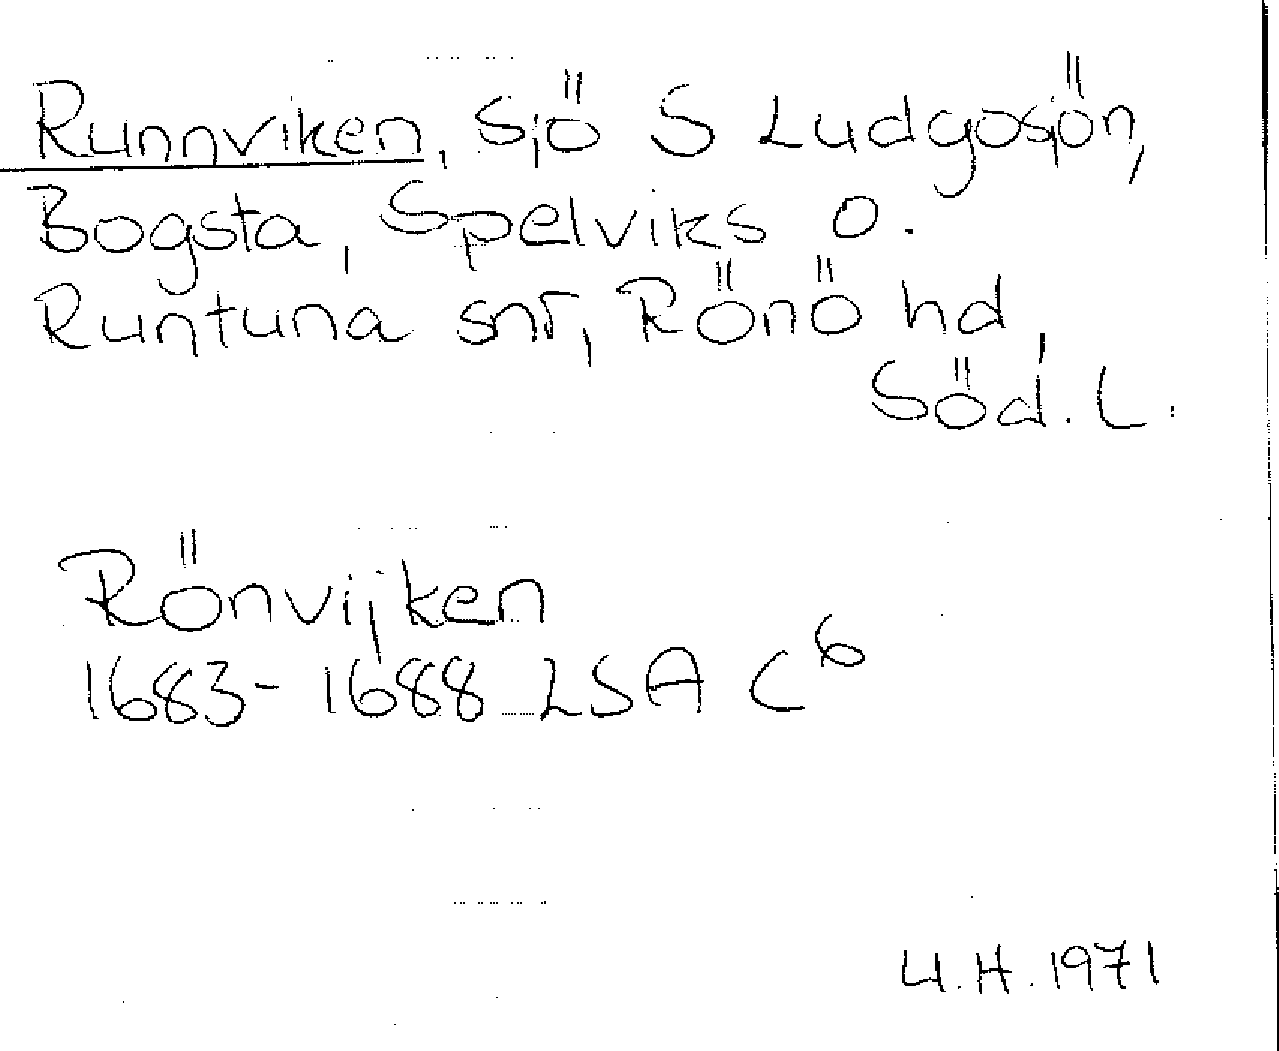 Runnviken, sjö S Ludgosjön,
Bogsta, Spelviks o.
Runtuna snr, Rönö hd,
Söd. L.
Rönvijken
1683-1688 LSA C⁶
U.H. 1971